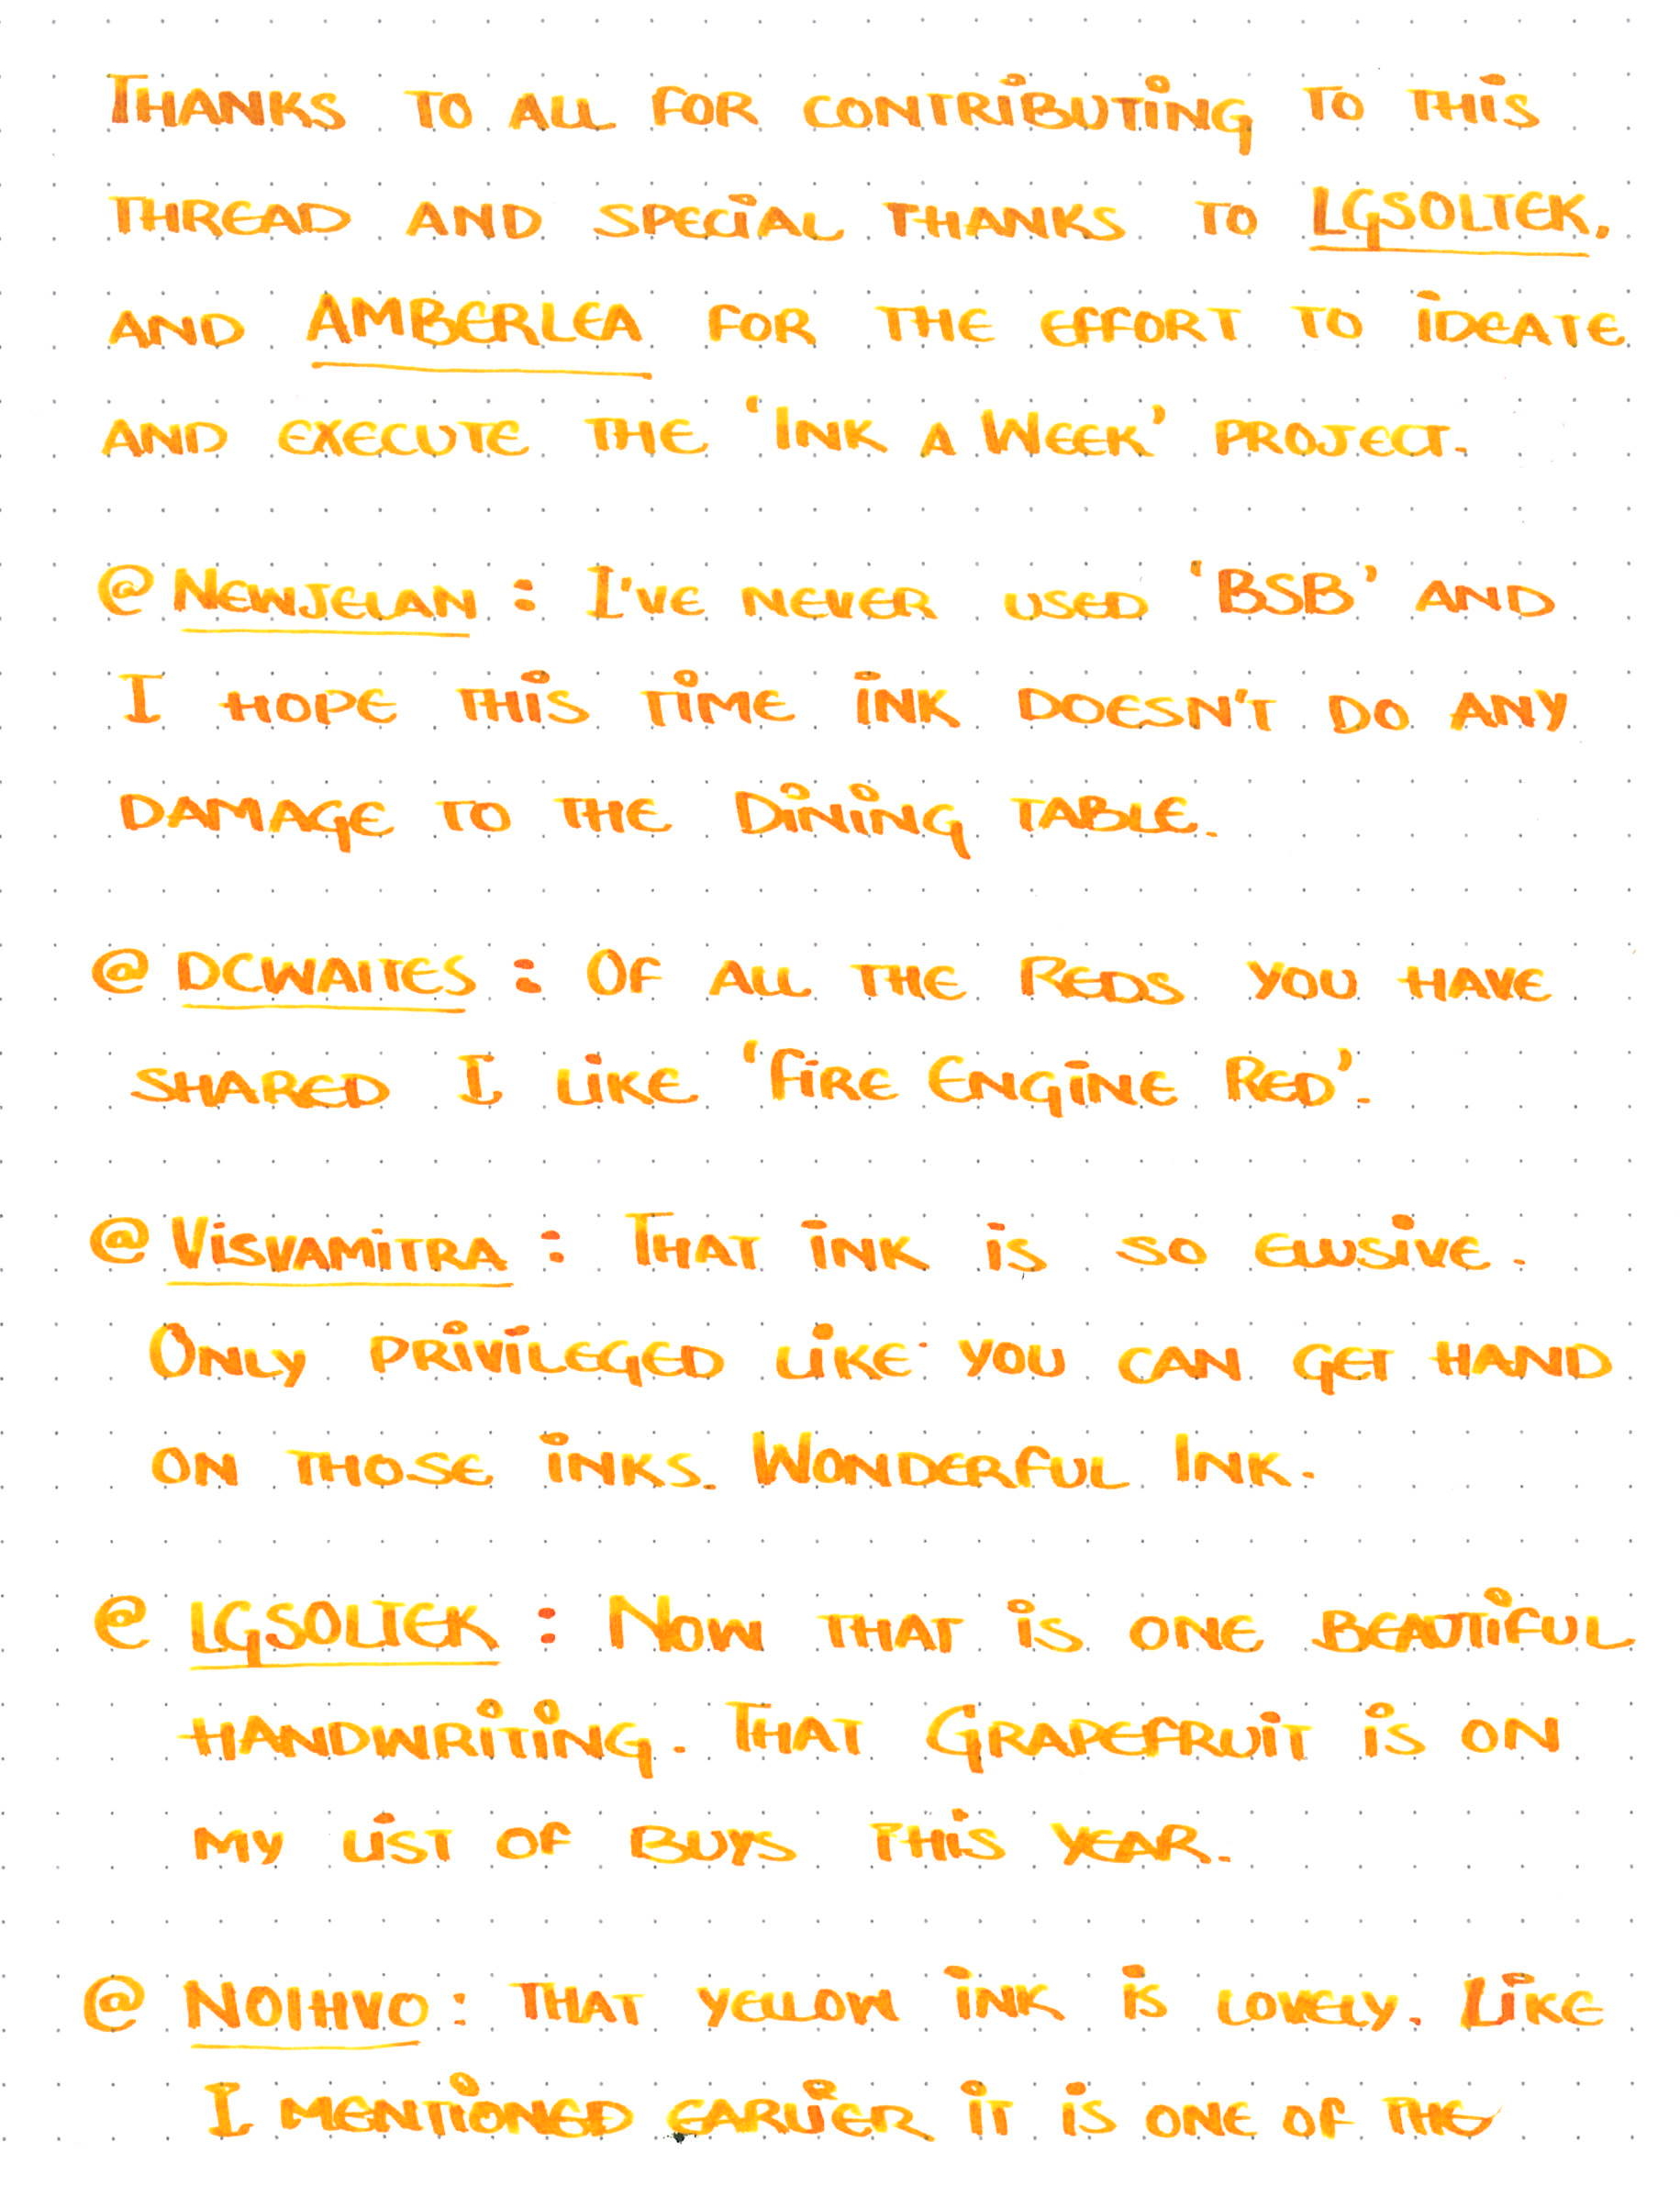 THANKS TO ALL FOR CONTRiBUTiNG TO THiS
THREAD AND SPECiAL THANKS TO LGSOLTEK,
AND AMBERLEA FOR THE EFFORT TO iDEATE
AND EXECUTE THE 'INK A WEEK' PROJECT.
@ NEWJELAN : I'VE NEVER USED 'BSB' AND
I HOPE THiS TiME iNK DOESN'T DO ANY
DAMAGE TO THE DiNiNG TABLE.
@ DCWAITES : OF ALL THE REDS YOU HAVE
SHARED I LiKE 'FiRE ENGiNE RED'.
@ ViSVAMiTRA : THAT iNK iS SO ELUSiVE.
ONLY PRiViLEGED LiKE YOU CAN GET HAND
ON THOSE iNKS. WONDERFUL INK.
@ LGSOLTEK : NOW THAT iS ONE BEAUTiFUL
HANDWRiTiNG. THAT GRAPEFRUiT iS ON
MY LiST OF BUYS THiS YEAR.
@ NOIHVO : THAT YELLOW iNK iS LOVELY. LiKE
I MENTiONED EARLiER iT iS ONE OF THE